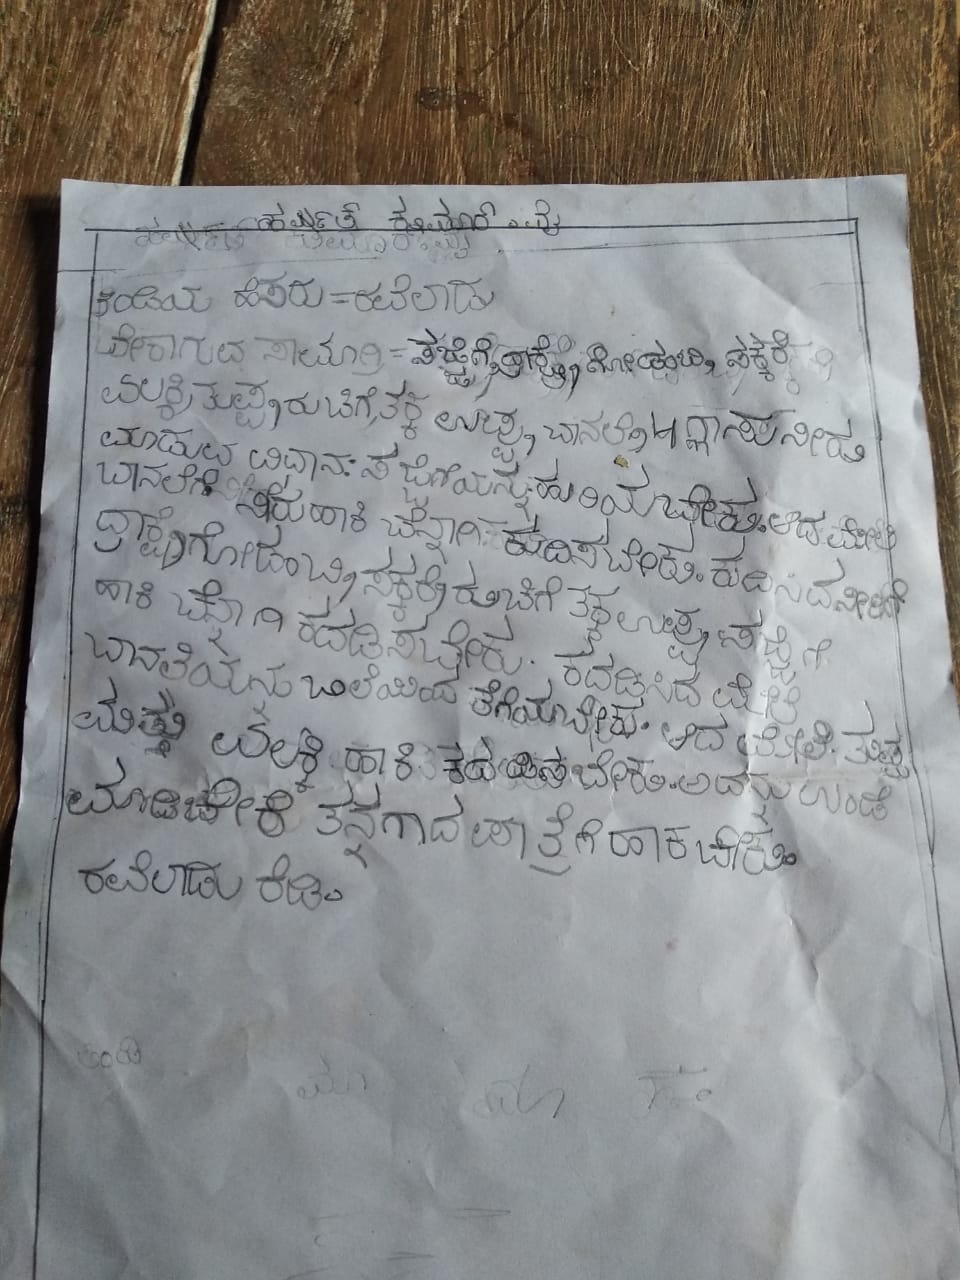 ಹರ್ಷಿತ್ ಕುಮಾರ್.ವೈ
ತಿಂಡಿಯ ಹೆಸರು=ರವೆಲಾಡು
ಬೇಕಾಗುವ ಸಾಮಾಗ್ರಿ=ಸಜ್ಜಿಗೆ, ದ್ರಾಕ್ಷೆ, ಗೋಡಂಬಿ, ಸಕ್ಕರೆ
ಏಲಕ್ಕಿ, ತುಪ್ಪ, ರುಚಿಗೆ ತಕ್ಕ ಉಪ್ಪು, ಬಾನಲೆ, 4 ಗ್ಲಾಸು ನೀರು
ಮಾಡುವ ವಿಧಾನ: ಸಜ್ಜಿಗೆಯನ್ನು ಹುರಿಯಬೇಕು. ಆದ ಮೇಲೆ
ಬಾನಲೆಗೆ ನೀರು ಹಾಕಿ ಚೆನ್ನಾಗಿ ಕುದಿಸಬೇಕು. ಕುದಿಸಿದ ನೀರಿಗೆ
ದ್ರಾಕ್ಷೆ, ಗೋಡಂಬಿ, ಸಕ್ಕರೆ, ರುಚಿಗೆ ತಕ್ಕ ಉಪ್ಪು, ಸಜ್ಜಿಗೆ
ಹಾಕಿ ಚೆನ್ನಾಗಿ ಕದಡಿಸಬೇಕು. ಕದಡಿಸಿದ ಮೇಲೆ
ಬಾನಲೆಯನ್ನು ಒಲೆಯಿಂದ ತೆಗೆಯಬೇಕು. ಆದ ಮೇಲೆ. ತುಪ್ಪ
ಮತ್ತು ಏಲಕ್ಕಿ ಹಾಕಿ ಕದಡಿಸಬೇಕು. ಅದನ್ನು ಉಂಡೆ
ಮಾಡಿಬೇಕೆ ತನ್ನಗಾದ ಪಾತ್ರೆಗೆ ಹಾಕಬೇಕು.
ರವೆಲಾಡು ರೆಡಿ.